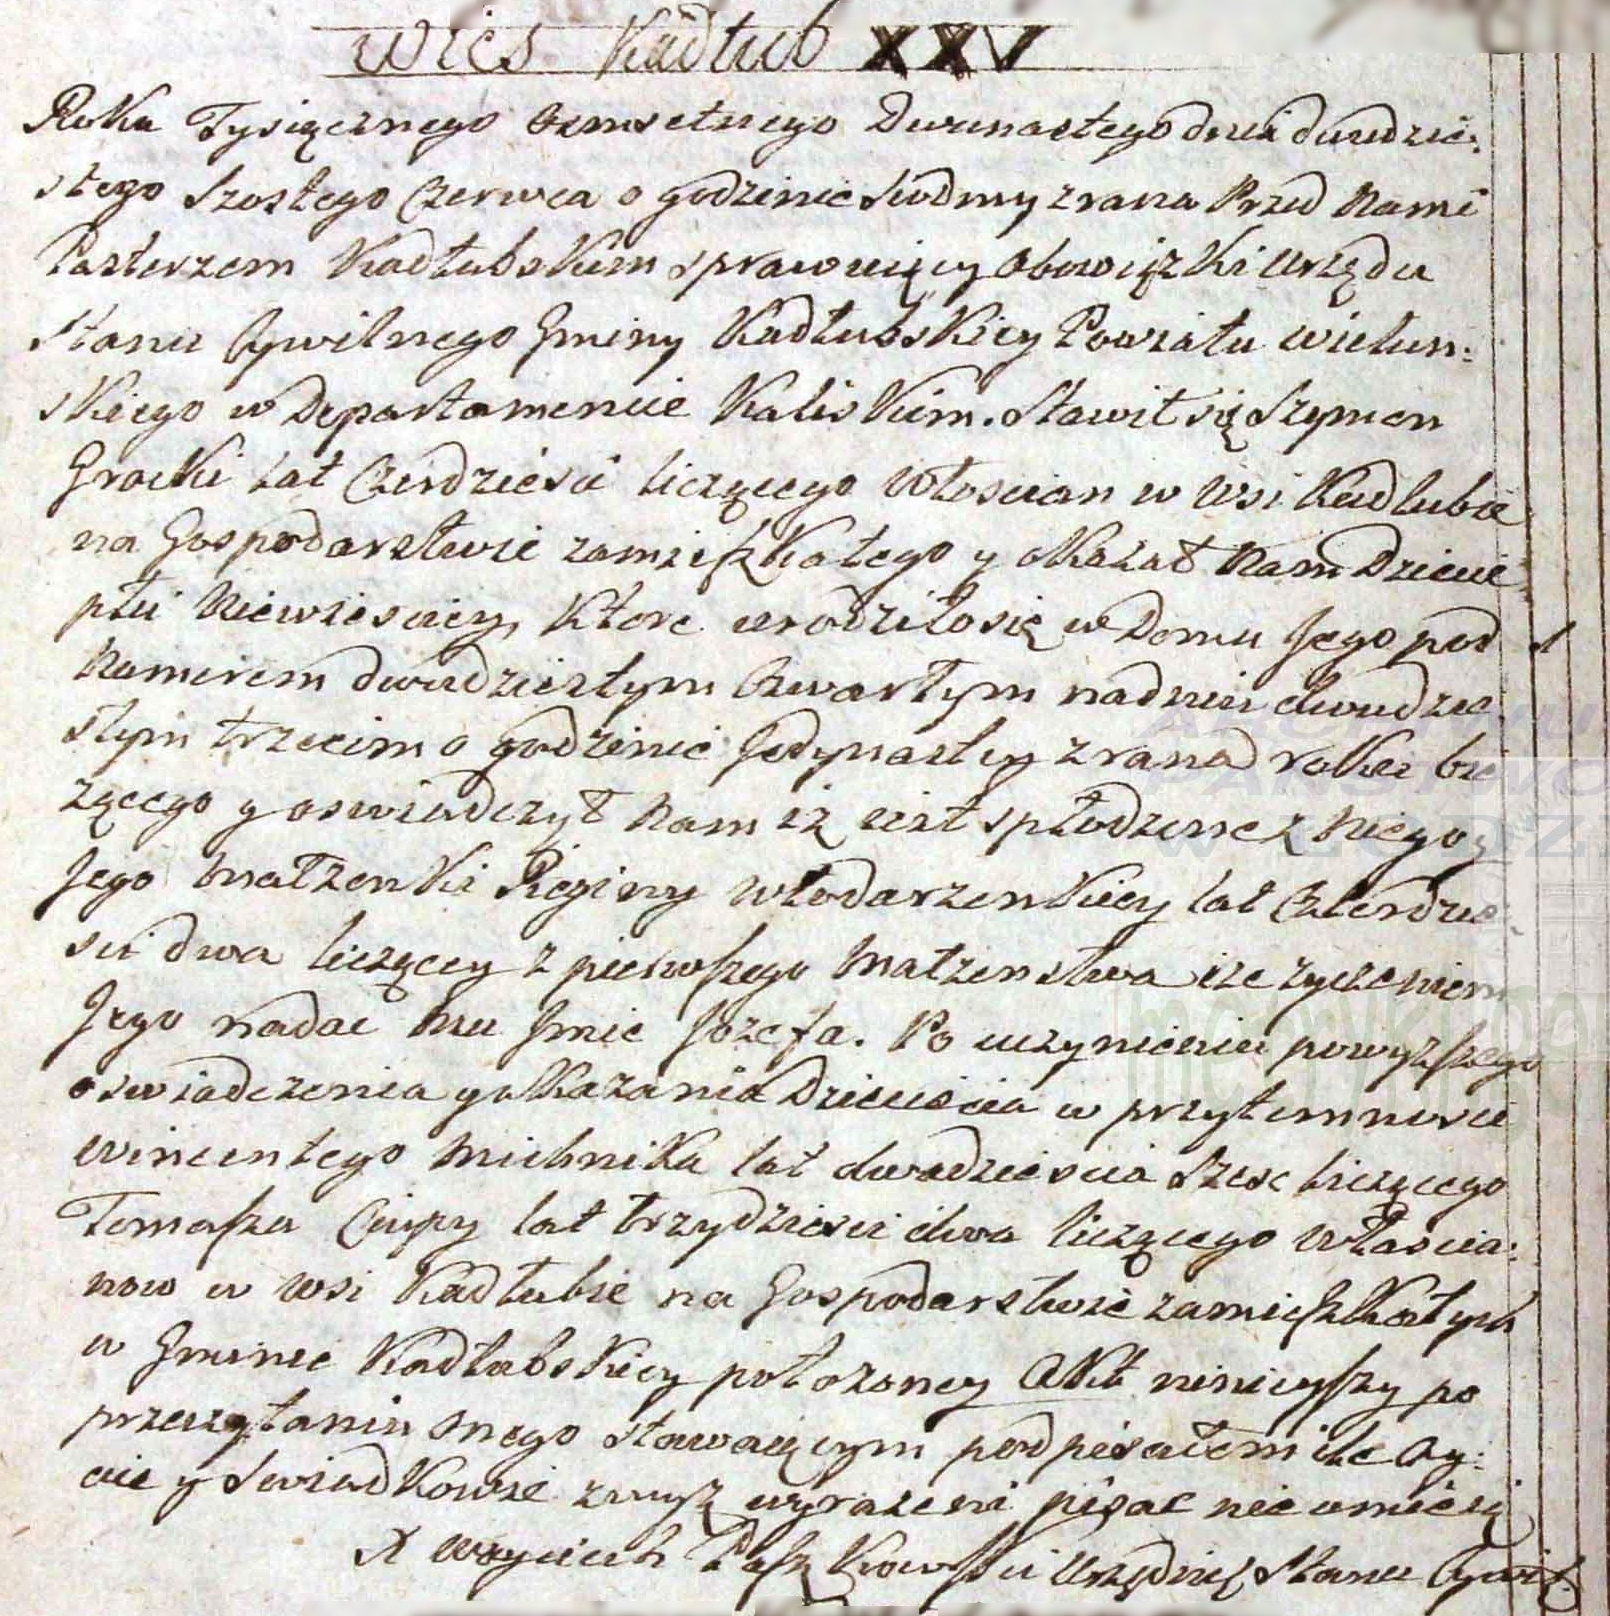 Wies Kadłub XXV
Roku Tysięcznego Osmsetnego Dwunastego dnia dwudzie:
stego Szostego Czerwca o godzinie siodmy z rana Przed Nami
Pasterzem Kadłubskim sprawuiący Obowiązki Urzędu
Stanu Cywilnego Gminy Kadłubskiey Powiatu Wielun:
skiego w Departamencie Kaliskim. Stawił się Szymon
Gracki lat Czterdziesci liczącego Włoscian w Wsi Kadłubie
na Gospodarstwie zamieszkałego y okazał Nam Dziecie
płci Niewiesciey, Ktore urodziło się w Domu Jego pod
Numerem dwudziestym Czwartym na dniu dwudzie
stym trzecim o godzinie Jedynastey z rana roku bie
żącego y oswiadczył Nam iż iest spłodzone z Niego y
Jego Małzenki Reginy Włodarzenkiey lat Czterdzie
sci dwa liczącey z pierwszego Małzenstwa ize zyczeniem
Jego nadac mu Jmie Jozefa. Po uczynieniu powyzszego
oswiadczenia y okazania Dzieciecia w przytomnosci
Wincentego Michnika lat dwadziescia szesc liczącego
Tomasza Ciupy lat trzydziesci dwa liczącego Włoscia:
now w Wsi Kadłubie na Gospodarstwie zamieszkałych
w Gminie Kadłubskiey połozoney Akt ninieyszy po
przeczytaniu onego stawaiącym podpisałem ile Oy:
ciec y Swiadkowie zwysz wyrazeni pisac nie umieią
X Woyciech Paszkowski Urzędnik Stanu Cywil:
ARCHIWU
PAŃSTWO
W ŁODZI
metryki.ge